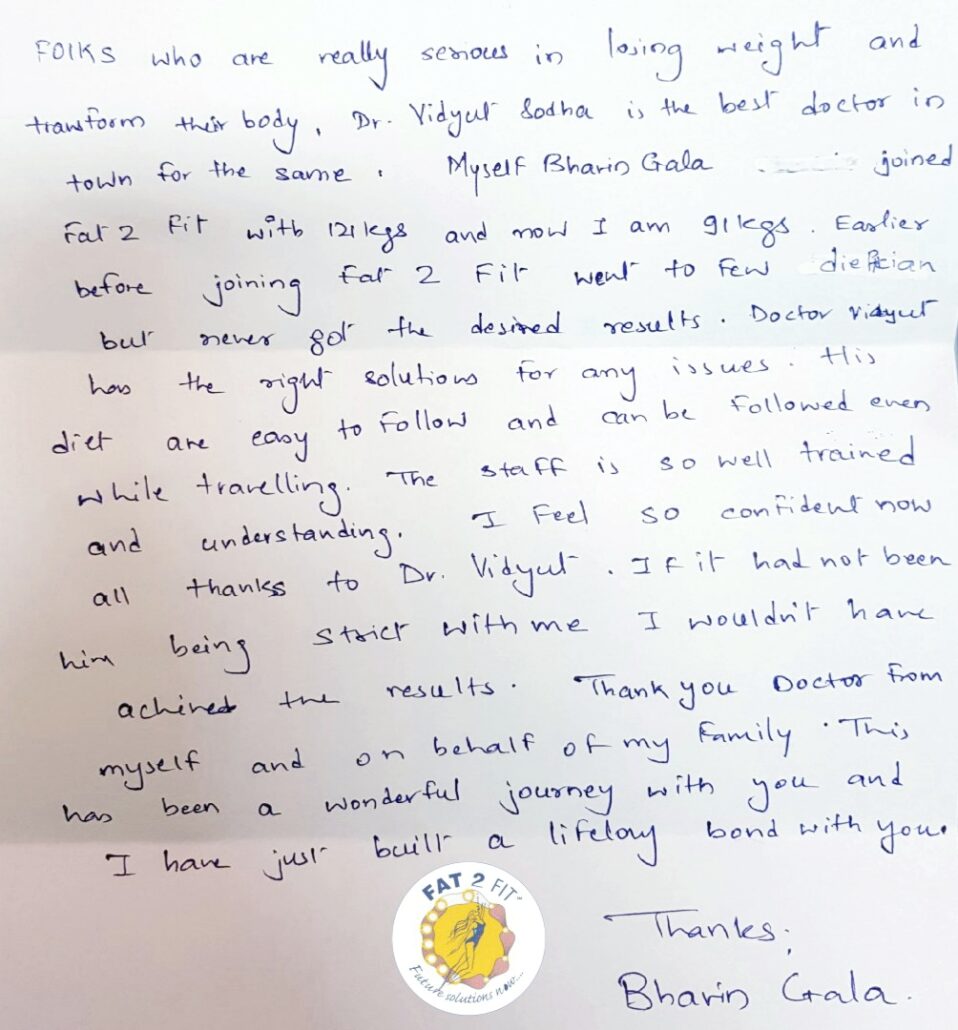 FOlKS who are really serious in losing weight and
transform their body. Dr. Vidyut Sodha is the best doctor in
town for the same. Myself Bhavin Gala joined
Fat 2 Fit with 121 kgs and now I am 91 kgs. Earlier
before joining Fat 2 Fit went to few dietician
but never got the desired results. Doctor Vidyut
has the right solutions for any issues. His
diet are easy to follow and can be followed even
while travelling. The staff is so well trained
and understanding. I feel so confident now
all thanks to Dr. Vidyut. If it had not been
him being strict with me I wouldn't have
achived the results. Thank you Doctor from
myself and on behalf of my family. This
has been a wonderful journey with you and
I have just built a lifelong bond with you.
FAT 2 FIT
Future solutions now...
Thanks,
Bhavin Gala.